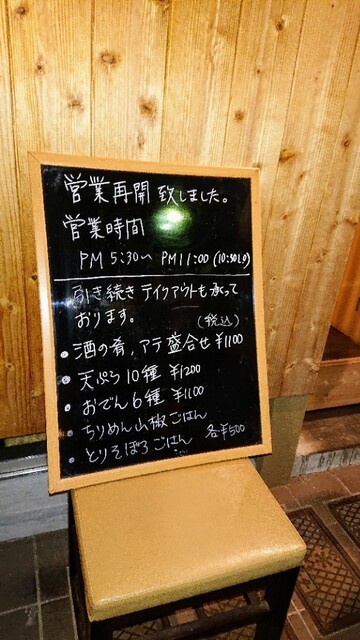 営業再開致しました。
営業時間
PM 5:30〜 PM11:00 (10:30LO)
引き続きテイクアウトも承って
おります。
(税込)
酒の肴,アテ盛合せ ¥1100
天ぷら10種 ¥1200
おでん6種 ¥1100
ちりめん山椒ごはん
とりそぼろごはん 各¥500